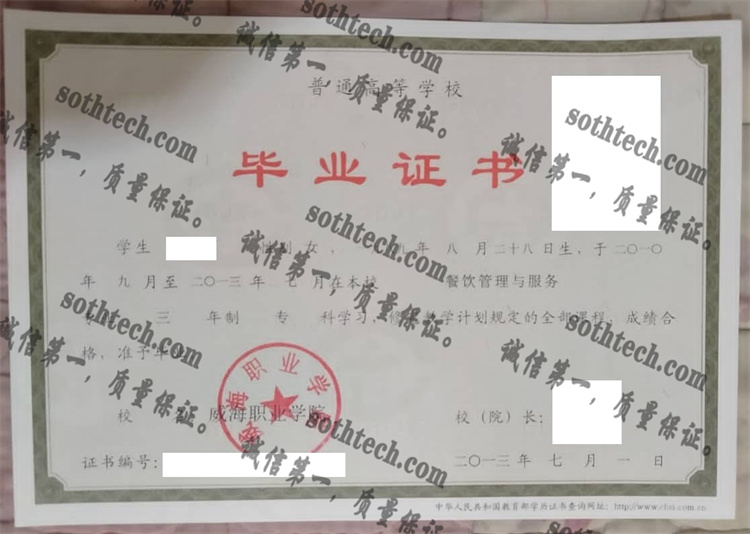 普通高等学校
毕业证书
学生 性别 女, 九年 八月二十八日生,于二〇一〇
年 九月至 二〇一三年 七月在本校 餐饮管理与服务
三 年制 专 科学习,修 教学计划规定的全部课程,成绩合
格,准予毕业
威海职业学院
校 威海职业学院 校(院)长:
证书编号: 二〇一三年 七月 一日
中华人民共和国教育部学历证书查询网址:http://www.chsi.com.cn
sothtech.com
诚信第一,质量保证。
sothtech.com
诚信第一,质量保证。
sothtech.com
诚信第一,质量保证。
sothtech.com
诚信第一,质量保证。
sothtech.com
诚信第一,质量保证。
sothtech.com
诚信第一,质量保证。
sothtech.com
诚信第一,质量保证。
sothtech.com
诚信第一,质量保证。